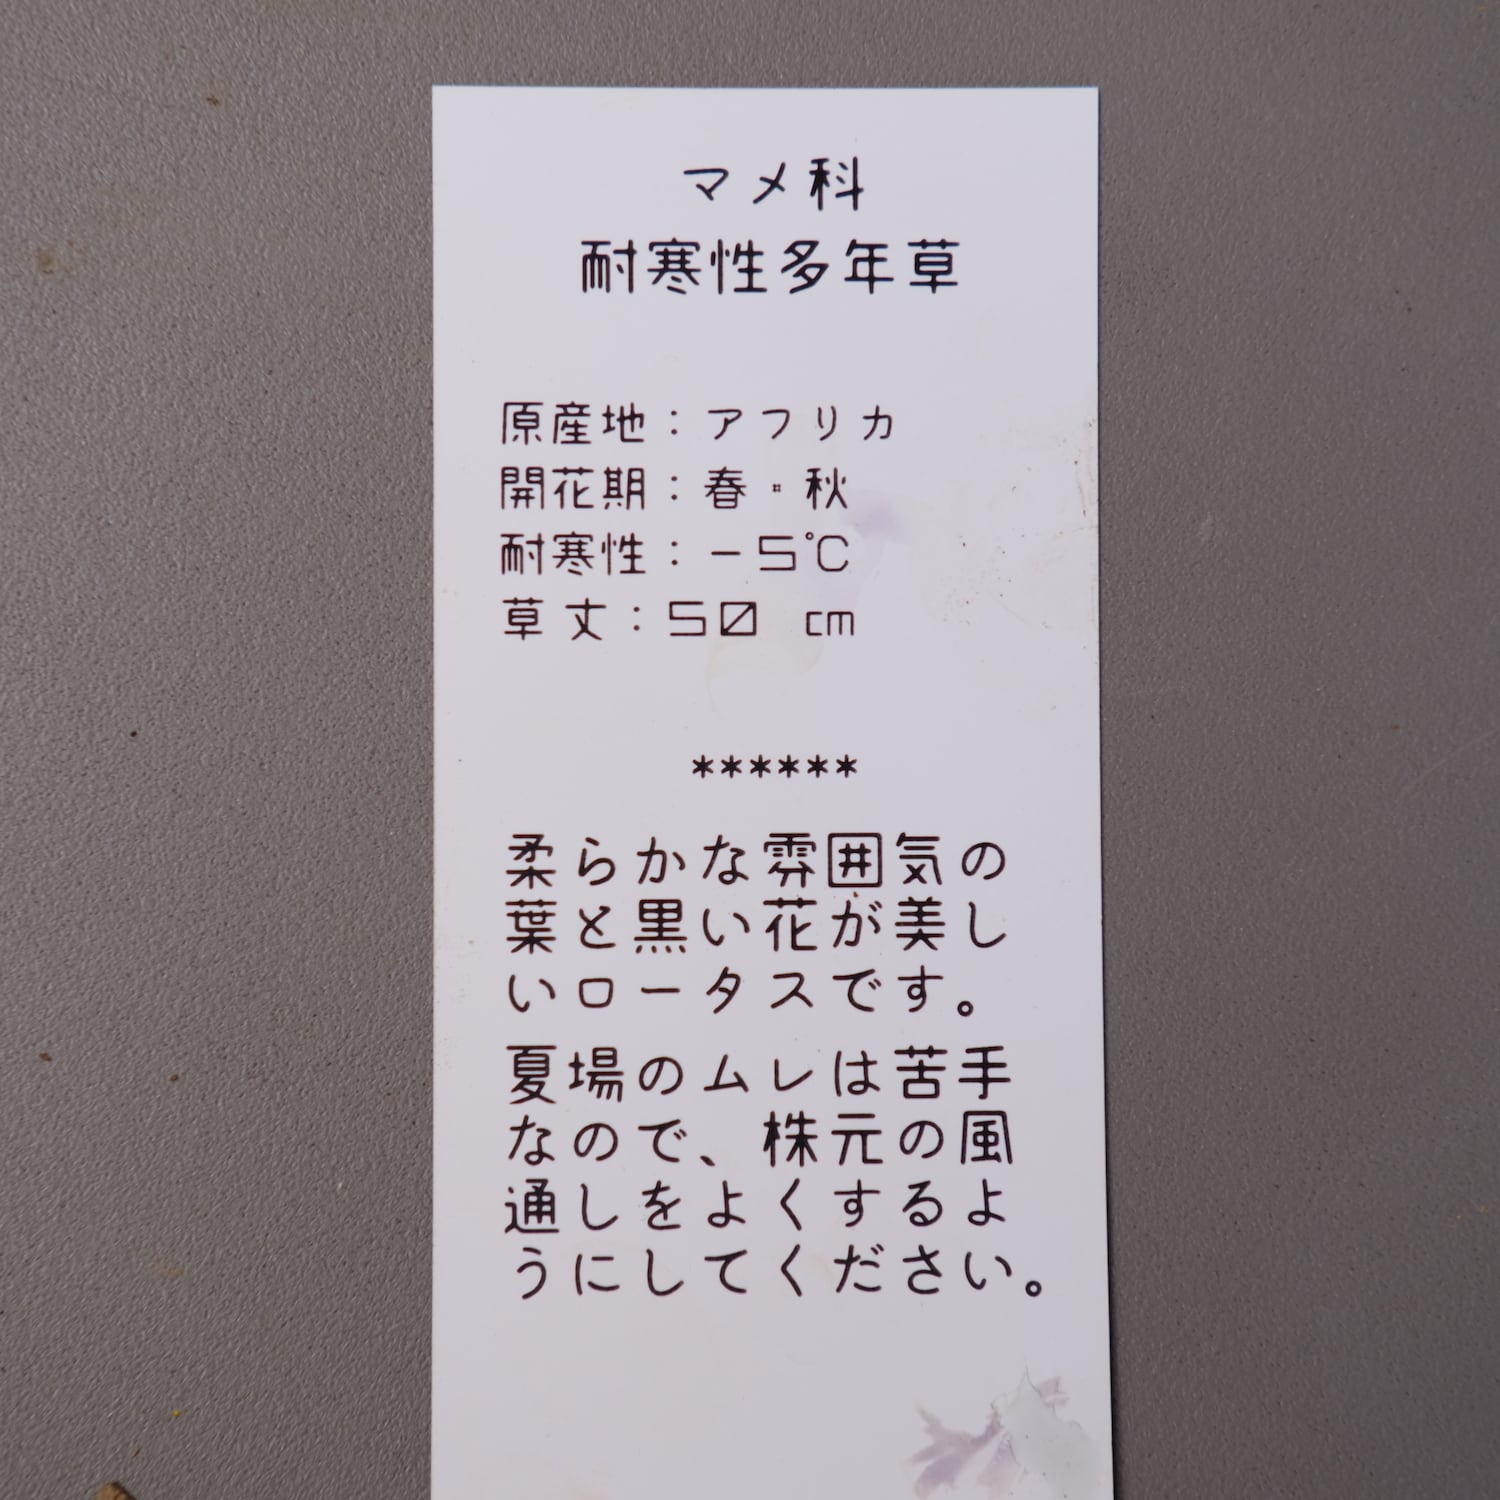 マメ科
耐寒性多年草
原産地：アフリカ
開花期：春・秋
耐寒性：－５℃
草丈：５０ cm
******
柔らかな雰囲気の
葉と黒い花が美し
いロータスです。
夏場のムレは苦手
なので、株元の風
通しをよくするよ
うにしてください。